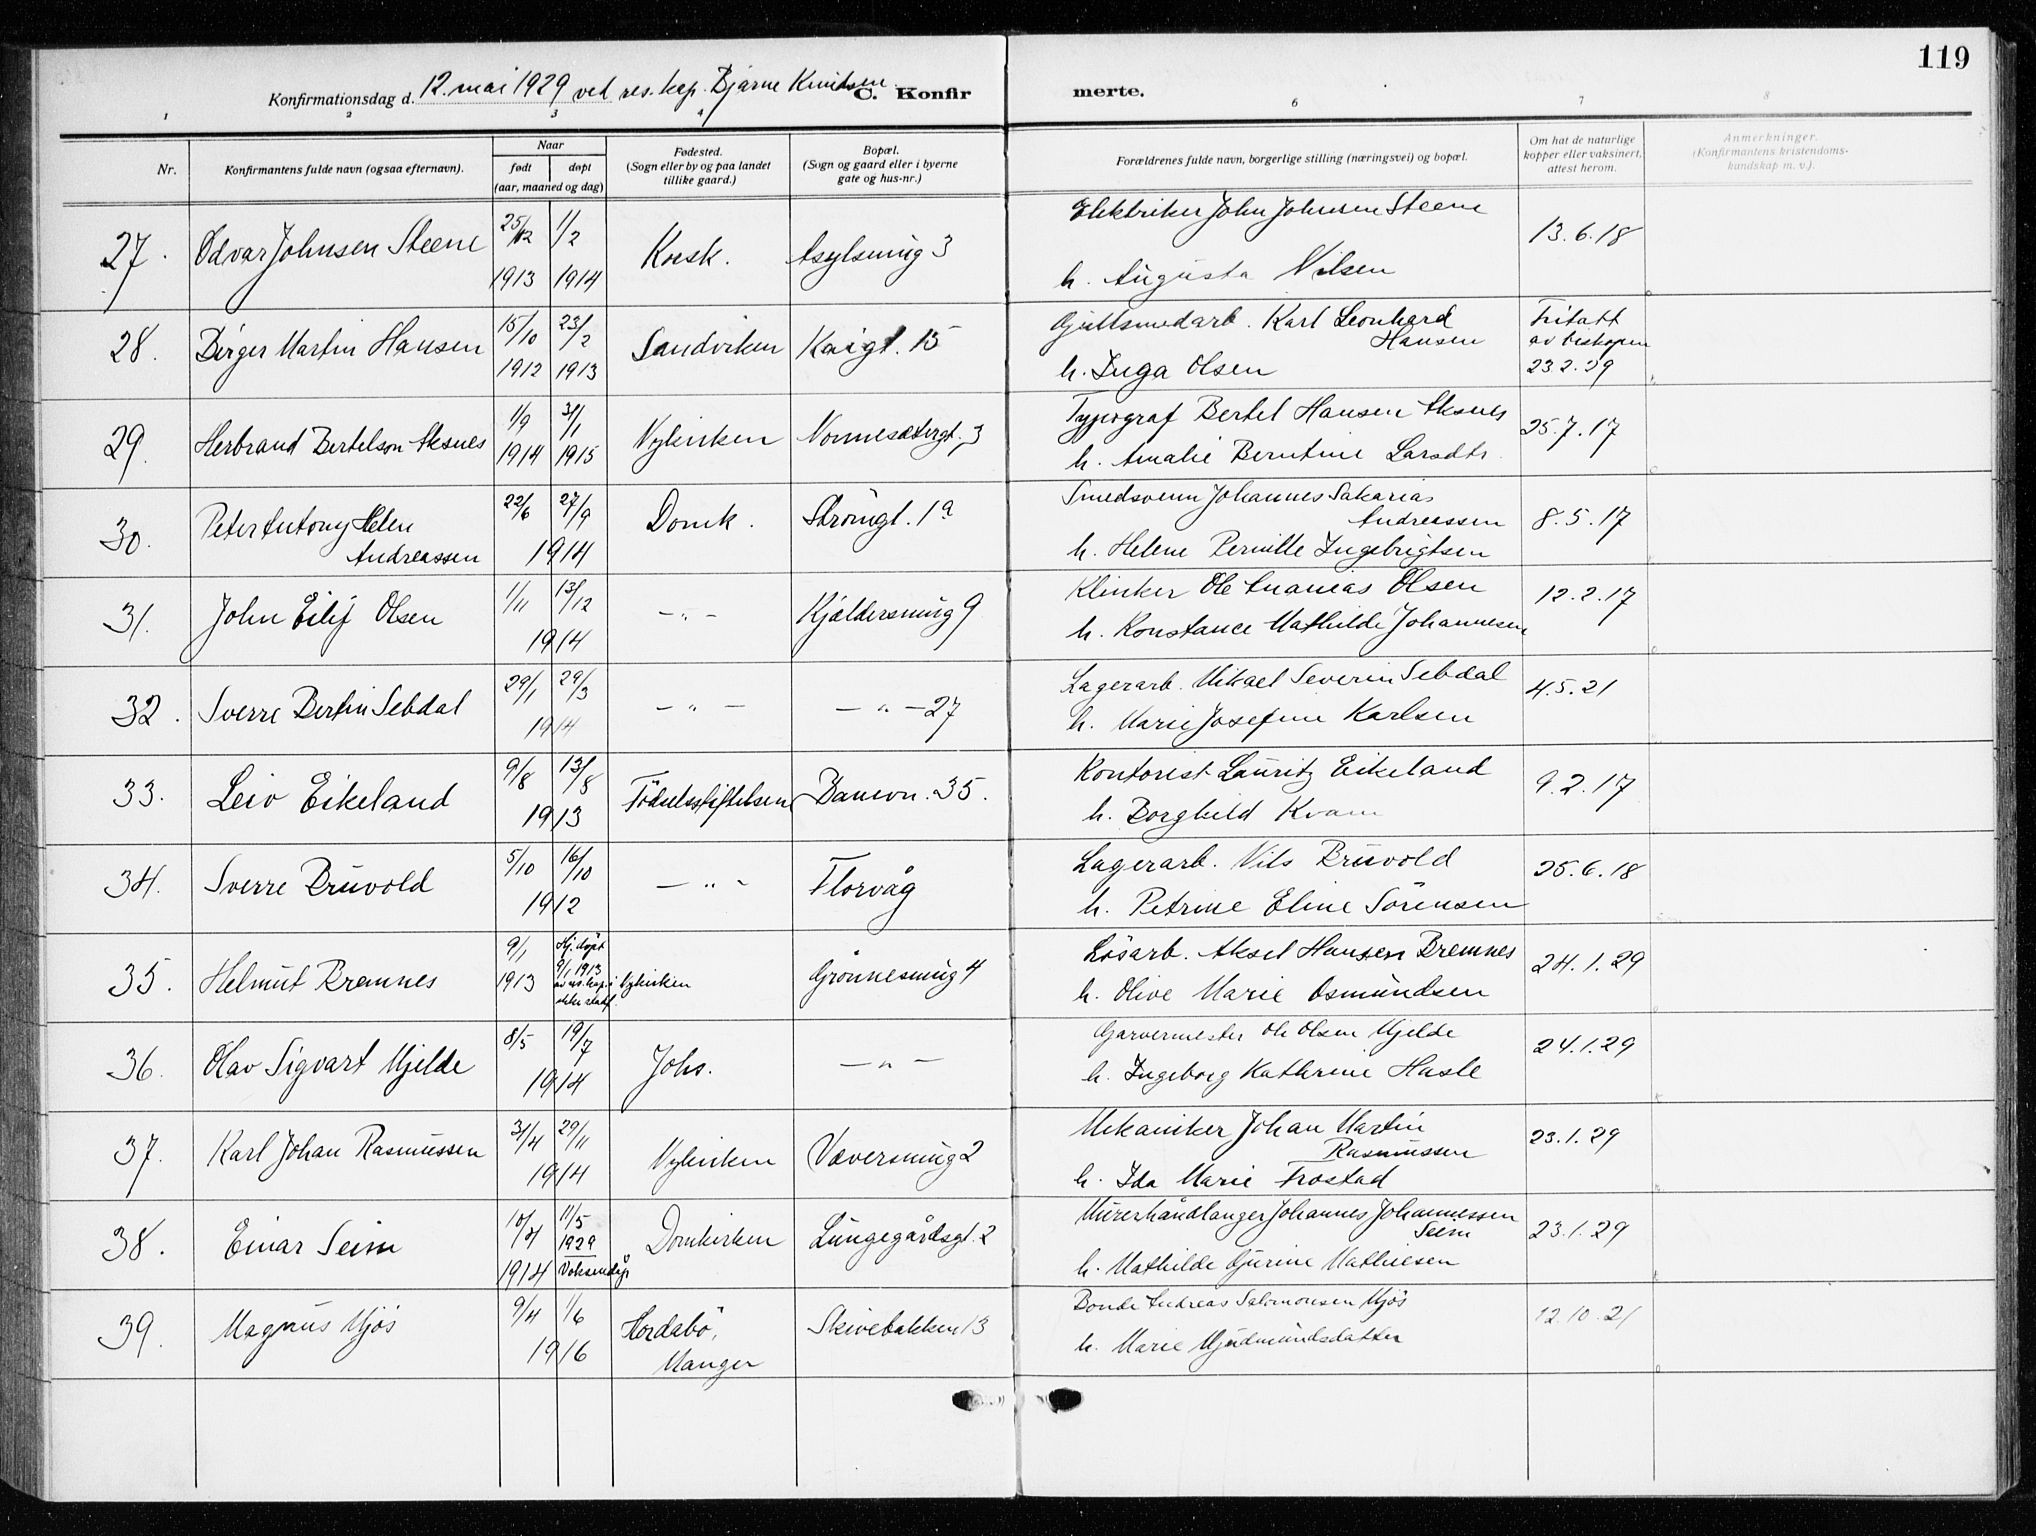 119
Konfirmationsdag d. 12. mai 1929 ved res. kap. Bjarne Knudsen C. Konfir merte.
1 2 3 4 6 7 8
Nr. Konfirmantens fulde navn (ogsaa efternavn). Naar født døpt (aar, maaned og dag) Fødested. (Sogn eller by og paa landet tillike gaard.) Bopæl. (Sogn og gaard eller i byerne gate og hus-nr.) Forældrenes fulde navn, borgerlige stilling (næringsvei) og bopæl. Om hat de naturlige kopper eller vaksinert, attest herom. Anmerkninger. (Konfirmantens kristendoms-kundskap m. v.).
27. Odvar Johnsen Steene 25/12 1913 1/2 1914 Korsk. Asylsmug 3 Elektriker John Johnsen Steene 13.6.18
h. Augusta Nilsen
28. Birger Martin Hansen 15/10 1912 23/2 1913 Sandviken Kaigt. 15 Gullsmedarb. Karl Leonhard Hansen Fritatt av biskopen 23.2.29
h. Inga Olsen
29. Herbrand Bertelson Aksnes 1/9 1914 3/1 1915 Nykirken Nonnesætergt. 3 Typograf Bertel Hansen Aksnes 25.7.17
h. Amalie Berntine Larsdtr.
30. Peter Antony Helen Andreassen 22/6 27/9 1914 Domk. Strömgt. 1a Smedsvenn Johannes Sakarias Andreassen 8.5.17
h. Helene Pernille Ingebrigtsen
31. John Eilif Olsen 1/11 13/12 1914 - " - Kjeldersmug 9 Klinker Ole Ananias Olsen 12.2.17
h. Konstance Mathilde Johannesen
32. Sverre Bertin Sebdal 29/1 29/3 1914 - " - - " - 27 Lagerarb. Mikael Severin Sebdal 4.5.21
h. Marie Josefine Karlsen
33. Leiv Eikeland 9/8 13/8 1913 Födselsstiftelsen Damsvn. 35. Kontorist Lauritz Eikeland 9.2.17
h. Borghild Kvam
34. Sverre Bruvold 5/10 16/10 1912 - " - Florvåg Lagerarb. Nils Bruvold 25.6.18
h. Petrine Eline Sörensen
35. Helmut Bremnes 9/1 1913 Hj. döpt 9/1 1913 av res. kap. Nykirken Grönnesmug 4 Lösarb. Aksel Hansen Bremnes 24.1.29
h. Olive Marie Osmundsen
36. Olav Sigvart Mjelde 8/5 19/7 1914 Johs. - " - Garvermester Ole Olsen Mjelde 24.1.29
h. Ingeborg Kathrine Hasle
37. Karl Johan Rasmussen 3/4 29/11 1914 Nykirken Væversmug 2 Mekaniker Johan Martin Rasmussen 23.1.29
h. Ida Marie Frostad
38. Einar Seim 10/4 1914 11/5 1929 Voksendåp Domkirken Lungegårdsgt. 2 Murerhåndlanger Johannes Johannessen Seim 23.1.29
h. Mathilde Gurine Mathiesen
39. Magnus Mjös 9/4 1/6 1916 Hordabö, Manger Skivebakken 13 Bonde Andreas Salomonsen Mjös 12.10.21
h. Marie Gudmundsdatter